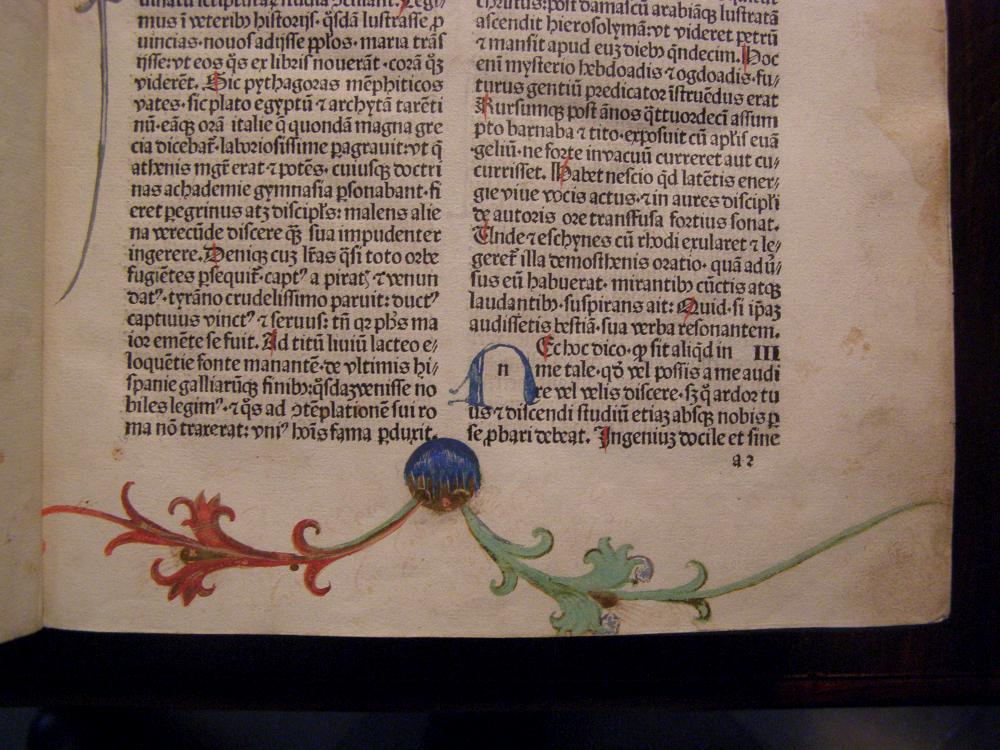 mus ī veterib᷒ historijs· q̄sdā lustrasse ꝓ
uincias· nouos adijsse ppl̄os· maria trās
ijsse: vt eos q̄s ex libris nouerāt· corā qʒ
viderēt. Sic pythagoras mēphiticos
vates· sic plato egyptū ⁊ archytā tarēti
nū· eāqʒ orā italie q̄ quondā magna gre
cia dicebat̄· laboriosissime ꝑagrauit: vt q̄
athenis mgr̄ erat ⁊ potēs· cuiusqʒ doctri
nas achademie gymnasia ꝑsonabant· fi
eret ꝑegrinus atqʒ discipl̄s: malens alie
na verecūde discere q̄ʒ sua impudenter
ingerere. Deniqʒ cuʒ lr̄as q̄si toto orbe
fugiētes ꝑsequit̄· captꝰ a piratꝭ ⁊ venun
datꝰ· tyrāno crudelissimo paruit: ductꝰ
captiuus vinctꝰ ⁊ seruus: tn̄ qꝛ ph̄s ma
ior emēte se fuit. Ad titū liuiū lacteo e⸗
loquētie fonte manantē· de vltimis hi⸗
spanie galliarūqʒ finib᷒: q̄sdaʒ venisse no
biles legimꝰ· ⁊ q̄s ad ↄtēplationē sui ro
ma nō traxerat: vniꝰ hoīs fama ꝑduxit.
ascendit hierosolymā: vt videret petrū
⁊ mansit apud euʒ dieb᷒ q̄ndecim. Hoc
enī mysterio hebdoadis ⁊ ogdoadis· fu⸗
turus gentiū predicator īstruēdus erat
Rursumqʒ post ānos q̄ttuordecī assum
pto barnaba ⁊ tito· exposuit cū apl̄is euā
geliū· ne forte in vacuū curreret aut cu⸗
currisset. Habet nescio qd̄ latētis ener⸗
gie viue vocis actus· ⁊ in aures discipl̄i
de autoris ore transfusa fortius sonat.
Unde ⁊ eschynes cū rhodi exularet ⁊ le⸗
geret̄ illa demosthenis oratio· quā adū⸗
sus eū habuerat· mirantib᷒ cūctis atqʒ
laudantib᷒· suspirans ait: Quid· si ip̄aʒ
audissetis bestiā· sua verba resonantem.
n Ec hoc dico· ꝙ sit aliqd̄ in III
me tale· qd̄ vel possis a me audi
re vel velis discere· sʒ q̄ ardor tu
us ⁊ discendi studiū etiaʒ absqʒ nobis ꝑ
se ꝓbari debeat. Ingeniuʒ docile et sine
a 2